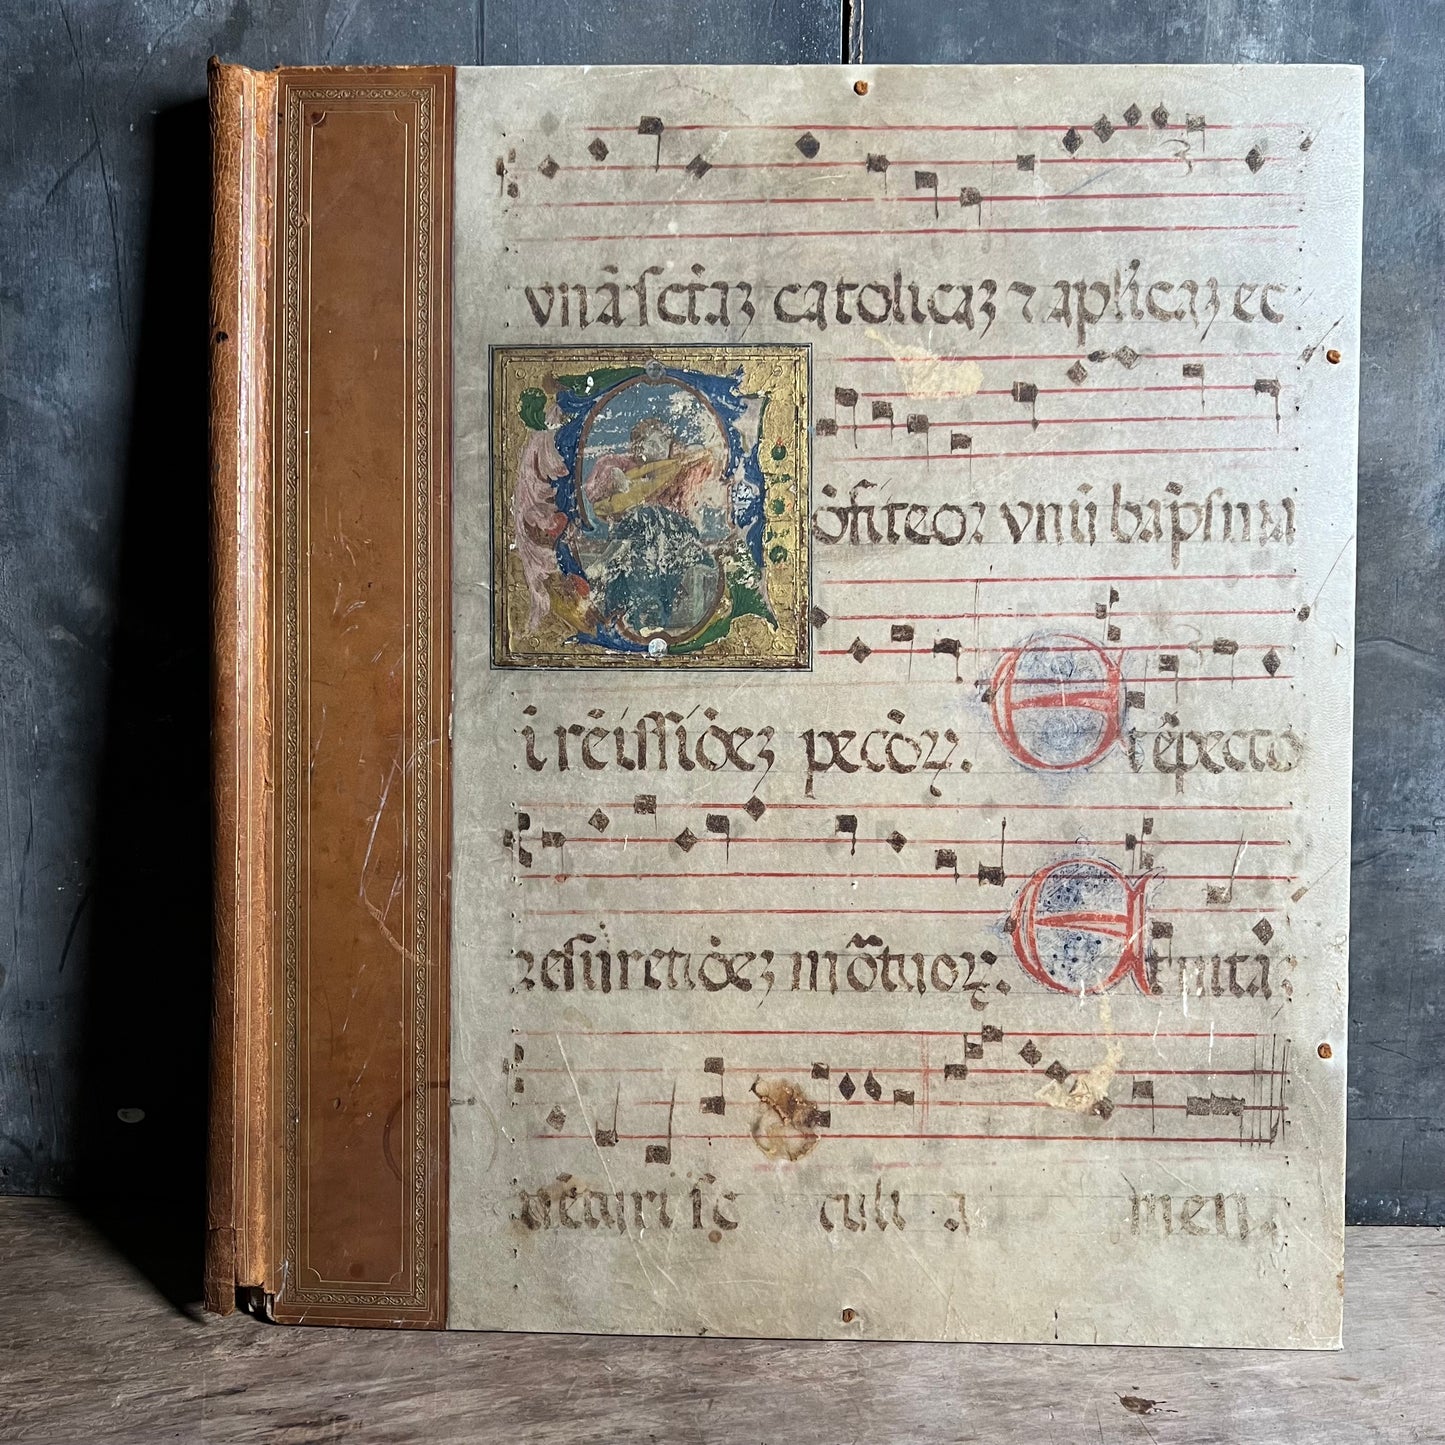 vnā ſctāꝫ catolicaꝫ ⁊ aplicaꝫ et
ōfiteor vnū bapſma
ī remiſſiōeꝫ peccōꝝ. Et expecto
reſurectiōeꝫ mōtuoꝝ. Et vitā
vētuři ſc culi a men.